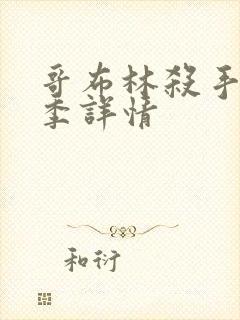 哥布林殺手
季詳情
和衍